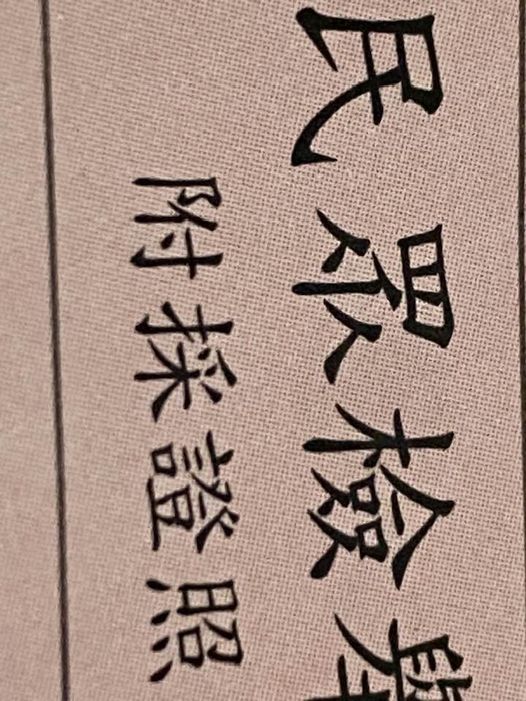 民眾檢舉
附採證照